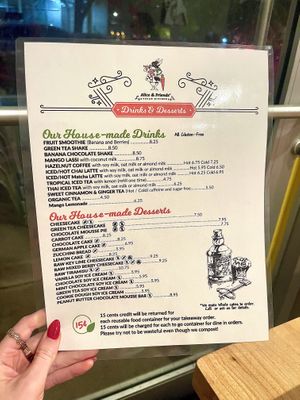 Alice & Friends'
VEGAN KITCHEN
Drinks & Desserts
Our House-made Drinks All Gluten-Free
FRUIT SMOOTHIE (Banana and Berries) 8.25
GREEN TEA SHAKE 8.50
BANANA CHOCOLATE SHAKE 8.50
MANGO LASSI with coconut milk 8.75
HAZELNUT COFFEE with soy milk, oat milk or almond milk Hot 6.75 Cold 7.25
ICED/HOT CHAI LATTE with soy milk, oat milk or almond milk
ICED/HOT Matcha LATTE with soy milk, oat milk or almond milk
TROPICAL ICED TEA with lemon
THAI ICED TEA with soy milk, oat milk or almond milk
SWEET CINNAMON & GINGER TEA (Hot / Cold caffeine and sugar free)
ORGANIC TEA 4.50
Mango Lemonade
Our House-made Desserts
CHEESECAKE 7.50
GREEN TEA CHEESECAKE
CHOCOLATE MOUSSE PIE
CARROT CAKE 8.25
CHOCOLATE CAKE
GERMAN APPLE CAKE
ZUCCHINI BREAD
COCONUT CAKE
RAW KEY LIME CHEESECAKE
RAW MIXED BERRY CHEESECAKE
RAW TIRAMISU
VANILLA SOY ICE CREAM
CHOCOLATE SOY ICE CREAM
MINT CHOCOLATE SOY ICE CREAM
GREEN TEA SOY ICE CREAM 5.95
COOKIE DOUGH SOY ICE CREAM 5.95
PEANUT BUTTER CHOCOLATE MOUSSE BAR
*We make whole cakes to order.
Call or ask us for details.
15¢
15 cents credit will be returned for
each reusable food container for your takeaway order.
15 cents will be charged for each to go container for dine in orders.
Please try not to be wasteful even though we compost!